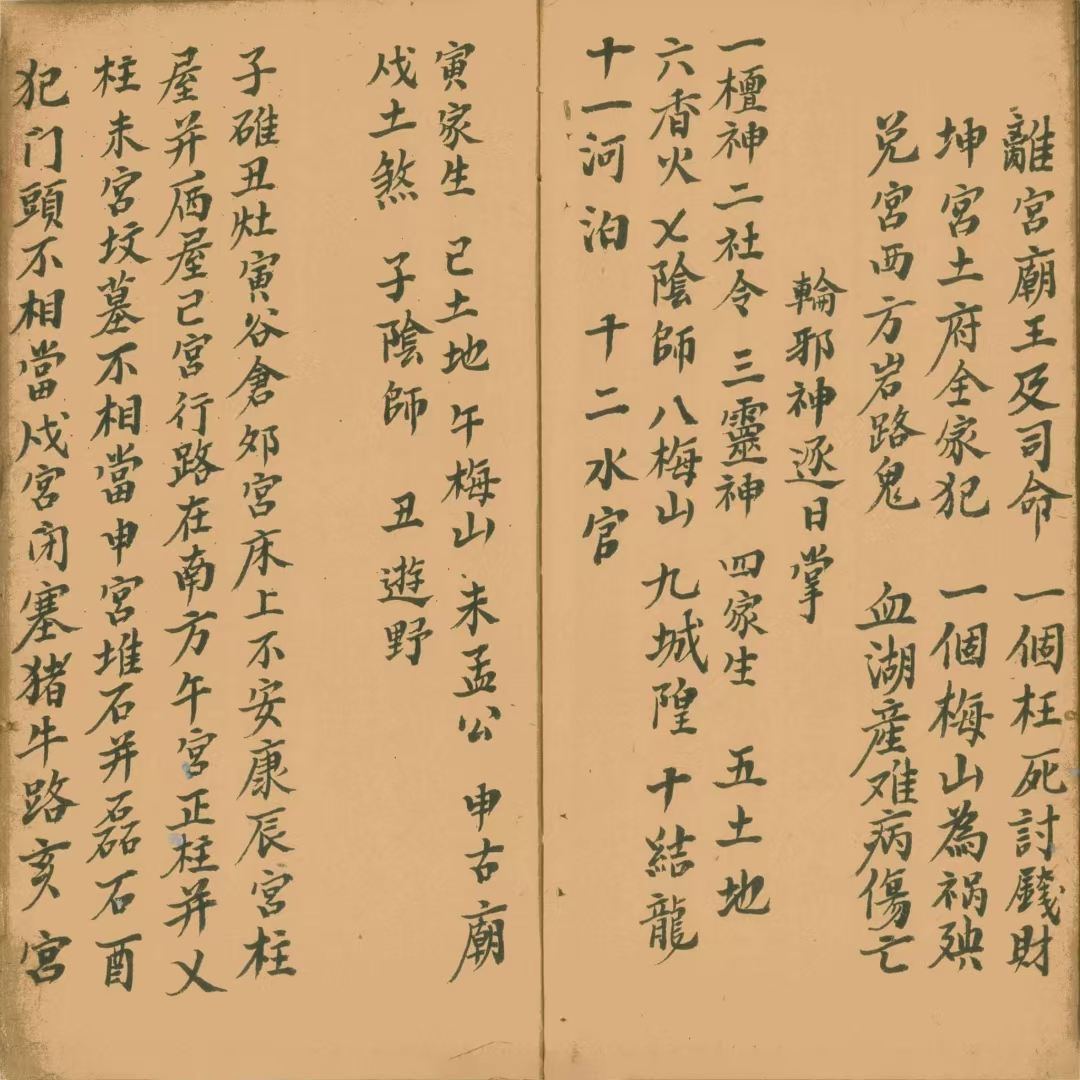 離宮廟王及司命 一個枉死討錢財
坤宮土府全家犯 一個梅山為禍殃
兌宮西方岩路鬼 血湖產难病傷亡
輪邪神逐日掌
一檀神二社令 三靈神 四家生 五土地
六香火乂陰師八梅山 九城隍 十結龍
十一河泊 十二水官
寅家生 己土地午梅山未孟公 申古廟
戌土煞 子陰師 丑遊野
子碓丑灶寅谷倉夘宮床上不安康辰宮柱
屋并俻屋己宮行路在南方午宮正柱并乂
柱未宮坟墓不相當申宮堆石并磊石酉
犯门頭不相當戌宮闭塞猪牛路亥宮